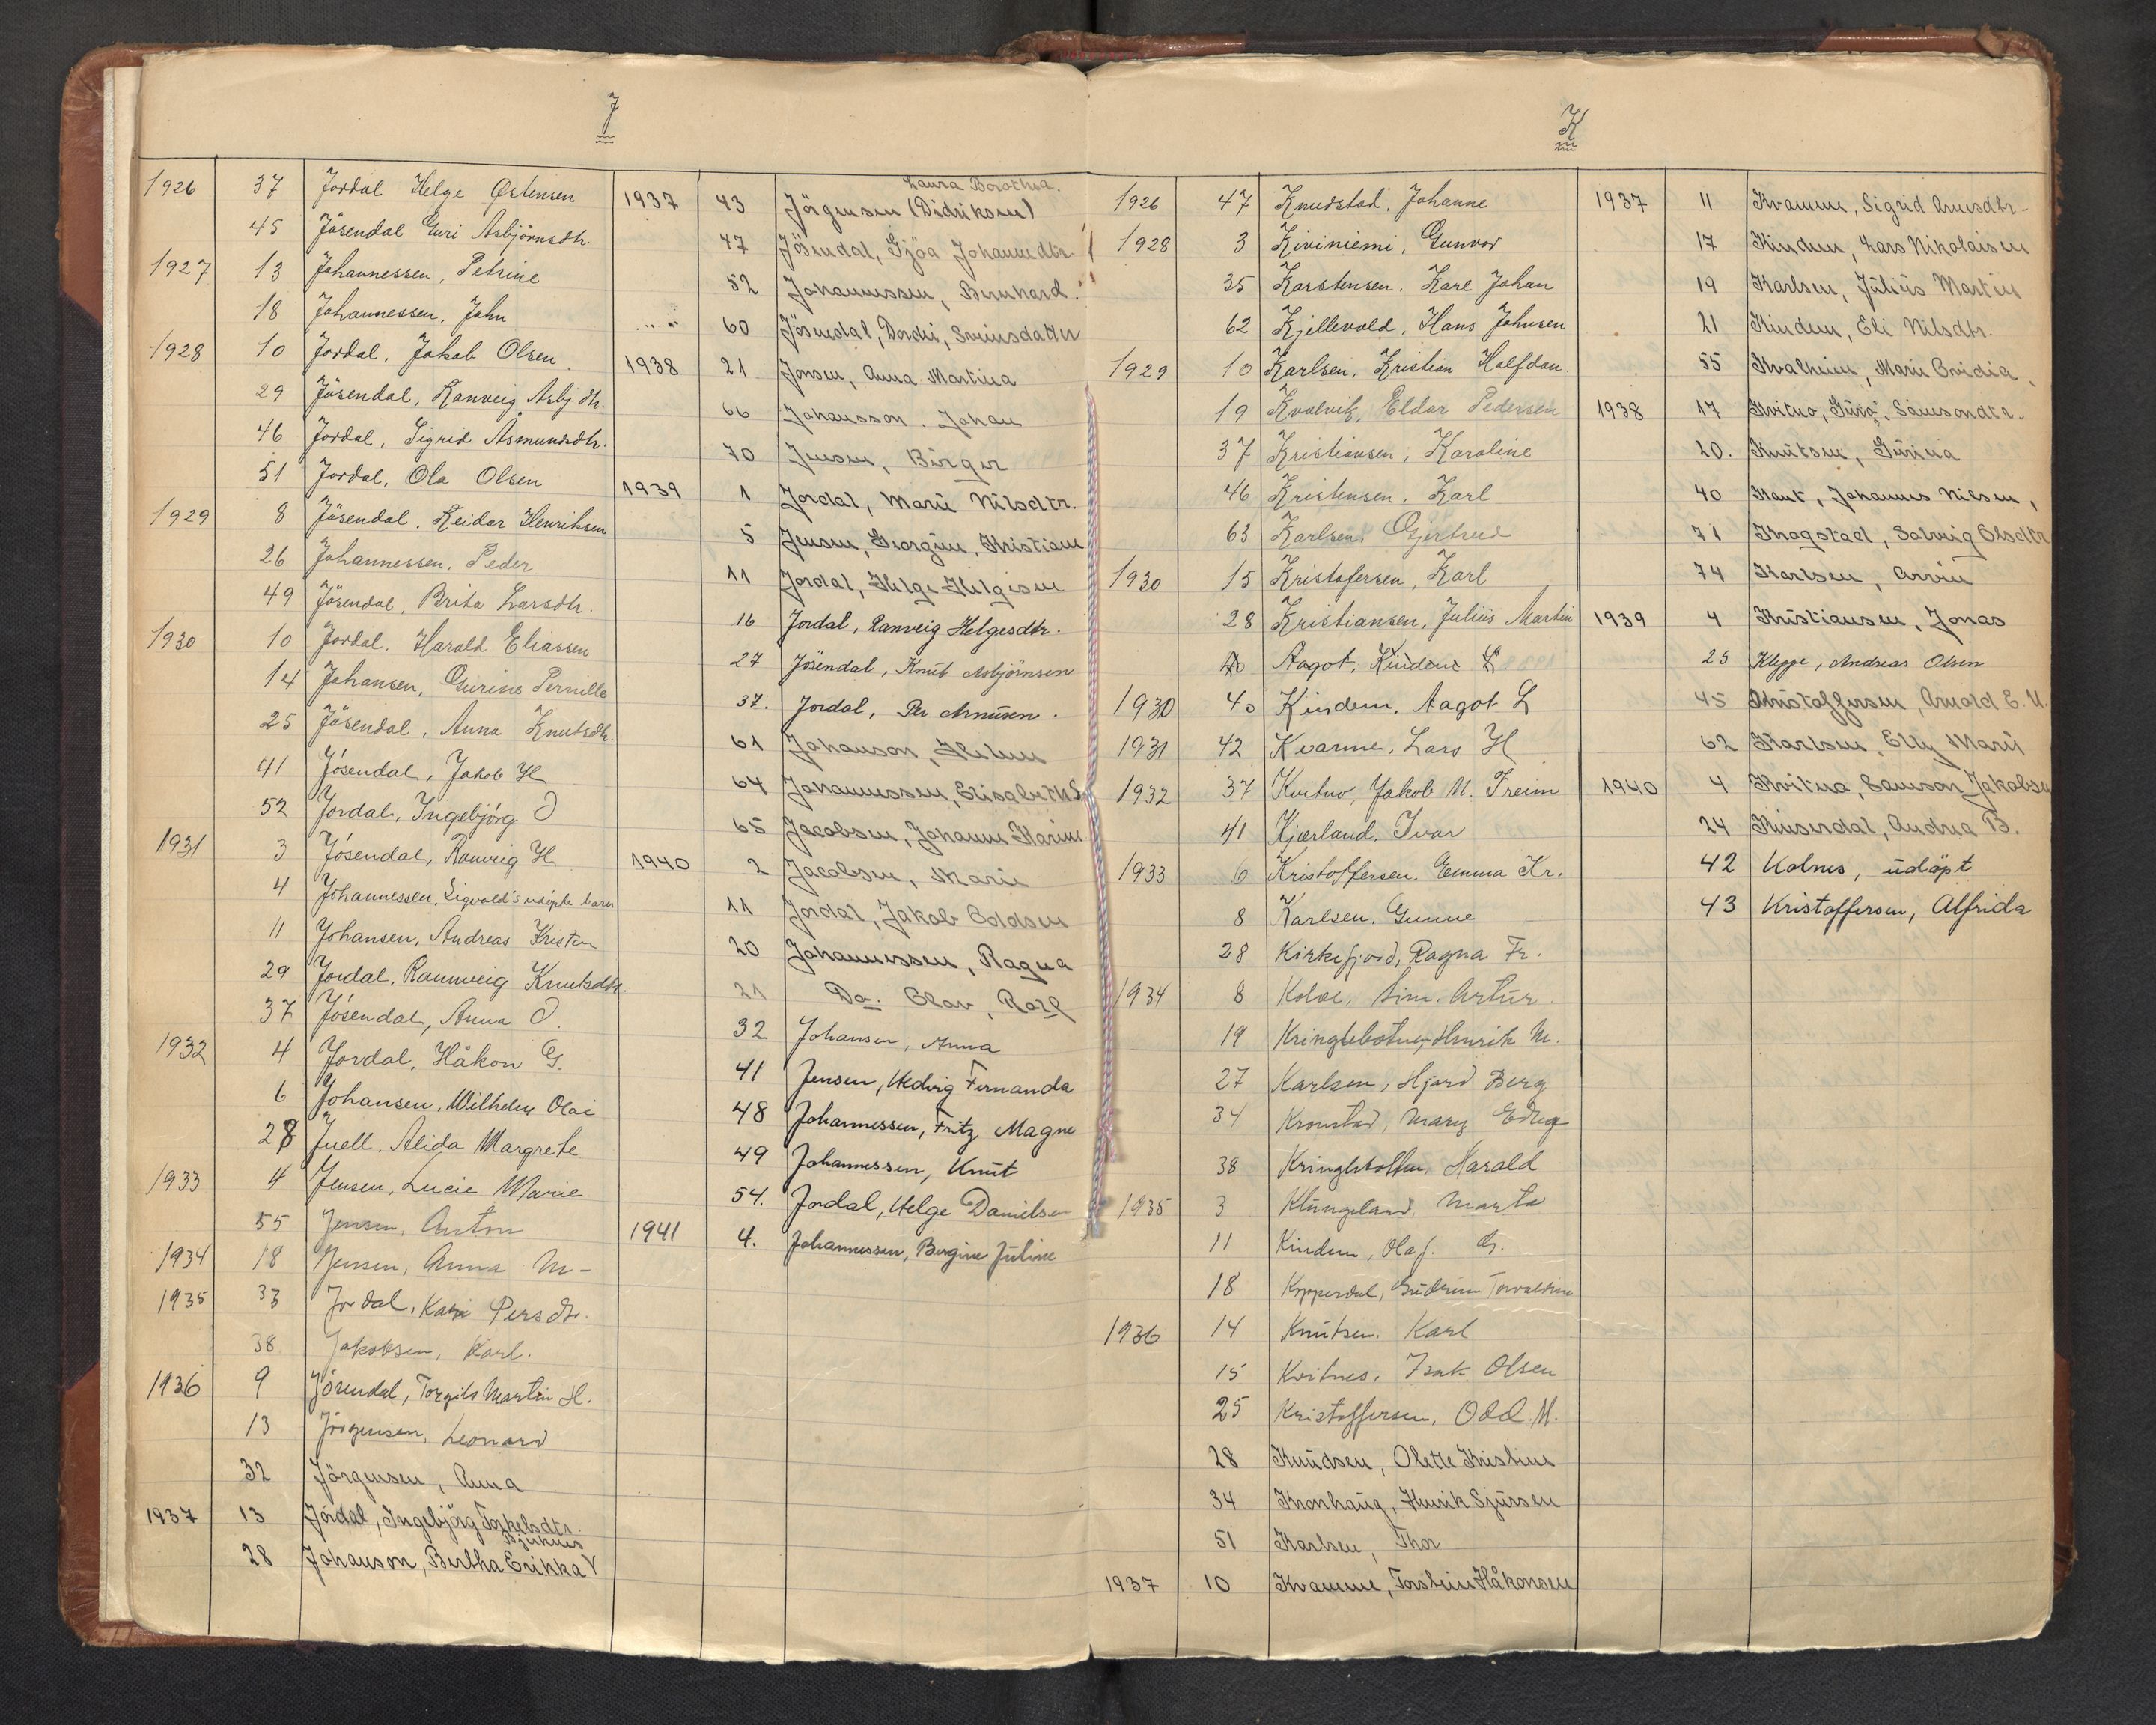 J
1926 37 Jordal Helge Østensen
45 Jösendal Guri Asbjörnsdtr.
1927 13 Johannessen, Petrine
18 Johannessen, John
1928 10 Jordal, Jakob Olsen.
29 Jösendal, Ranveig Asbj dtr.
46 Jordal, Sigrid Åsmundsdtr.
51 Jordal, Ola Olsen
1929 8 Jösendal, Reidar Henriksen
26 Johannessen, Peder
49 Jösendal, Brita Larsdtr.
1930 10 Jordal, Harald Eliassen
14 Johansen, Gurine Pernille
25 Jösendal, Anna Knutsdtr.
41 Jösendal, Jakob H
52 Jordal, Ingebjörg O
1931 3 Jösendal, Ranveig H
4 Johannessen, Sigvald's udöpte barn
11 Johansen, Andreas Kristen
29 Jordal, Raunveig Knutsdtr.
37 Jösendal, Anna O.
1932 4 Jordal, Håkon G.
6 Johansen, Wilhelm Olai
28 Juell, Alida Margrete
1933 4 Jensen, Lucie Marie
55 Jensen, Anton
1934 18 Jensen, Anna M-
1935 33 Jordal, Kari Persdtr.
38 Jakobsen, Karl.
1936 9 Jösendal, Torgils Martin H.
13 Jörgensen, Leonard
32 Jörgensen, Anna
1937 13 Jordal, Ingebjörg Torkelsdtr.
Bjerknes
28 Johanson, Bertha Erikka V
Laura Dorothea.
1937 43 Jörgensen (Didriksen)
47 Jösendal, Gjöa Johannedtr.
52 Johannessen, Bernhard.
60 Jösendal, Dordei, Sveinsdatter
1938 21 Jonsen, Anna Martina
66 Johansson, Johan
70 Jensen, Birger
1939 1 Jordal, Marie Nilsdtr.
5 Jensen, Georgine, Kristiane
11 Jordal, Helge Helgesen
16 Jordal, Ranveig Helgesdtr.
27 Jösendal, Knut Asbjörnsen
37. Jordal, Per Arnesen.
61 Johanson, Helene
64 Johannessen, Elisabeth S
65 Jacobsen, Johanne Karine
1940 2 Jacobsen, Marie
11 Jordal, Jakob Oddsen
20 Johannessen, Ragna
21 Do. Olav, Karl
32 Johansen, Anna
41 Jensen, Hedvig Fernanda
48 Johannessen, Fritz Magne
49 Johannessen, Knut
54. Jordal, Helge Danielsen
1941 4. Johannessen, Bergine Juline
K
1926 47 Knudstad, Johanne
1928 3 Kiviniemi, Gunvor
35 Karstensen, Kare Johan
62 Kjellevold, Hans Johnsen
1929 10 Karlsen, Kristian Halfdan.
19 Kvalvik, Eldar Pedersen
37 Kristiansen, Karoline
46 Kristensen, Karl
63 Karlsen, Gjertrud
1930 15 Kristofersen, Karl
28 Kristiansen, Julius Martin
40 Aagot, Kindem L
1930 40 Kindem, Aagot L
1931 42 Kvarme, Lars H
1932 37 Kvitno, Jakob M. Freim
41 Kjærland, Ivar
1933 6 Kristoffersen, Emma Kr.
8 Karlsen, Gunne
28 Kirkefjord, Ragna Fr.
1934 8 Koloe, Sim. Artur.
19 Kringlebotnen, Henrik M.
27 Karlsen, Hjord Berg
34 Kronstad, Mary
38 Kringlebotten, Harald
1935 3 Klungeland, Marta
11 Kindem, Olaf. G.
18 Kopperdal, Gudrun
1936 14 Knutsen, Karl
15 Kvitnes, Isak Olsen
25 Kristoffersen, Odd. M.
28 Knudsen, Olette Kristine
34 Kronhaug, Henrik Sjursen
51 Karlsen, Thor
1937 10 Kvamme, Torstein Håkonsen
1937 11 Kvamme, Sigrid Arnesdtr-
17 Kindem, Lars Nikolaisen
19 Karlsen, Julius Martin
21 Kindem, Eli Nilsdtr.
55 Kvalheim, Marie Ovidia.
1938 17 Kvitno, Guro, Samsondtr.
20. Knutsen, Gurina
40 Kant, Johannes Nilsen,
71 Skogstad, Solveig Olsdtr
74 Karlsen, Arvin
1939 4 Kristiansen, Jonas
25 Kleppe, Andreas Olsen
45 Kristoffersen, Arnold E. M.
62 Karlsen, Elly Marie
1940 4 Kvitna, Samson Jakobsen
24 Andrea B.
42 Kolnes, udöpt
43 Kristoffersen, Alfrida